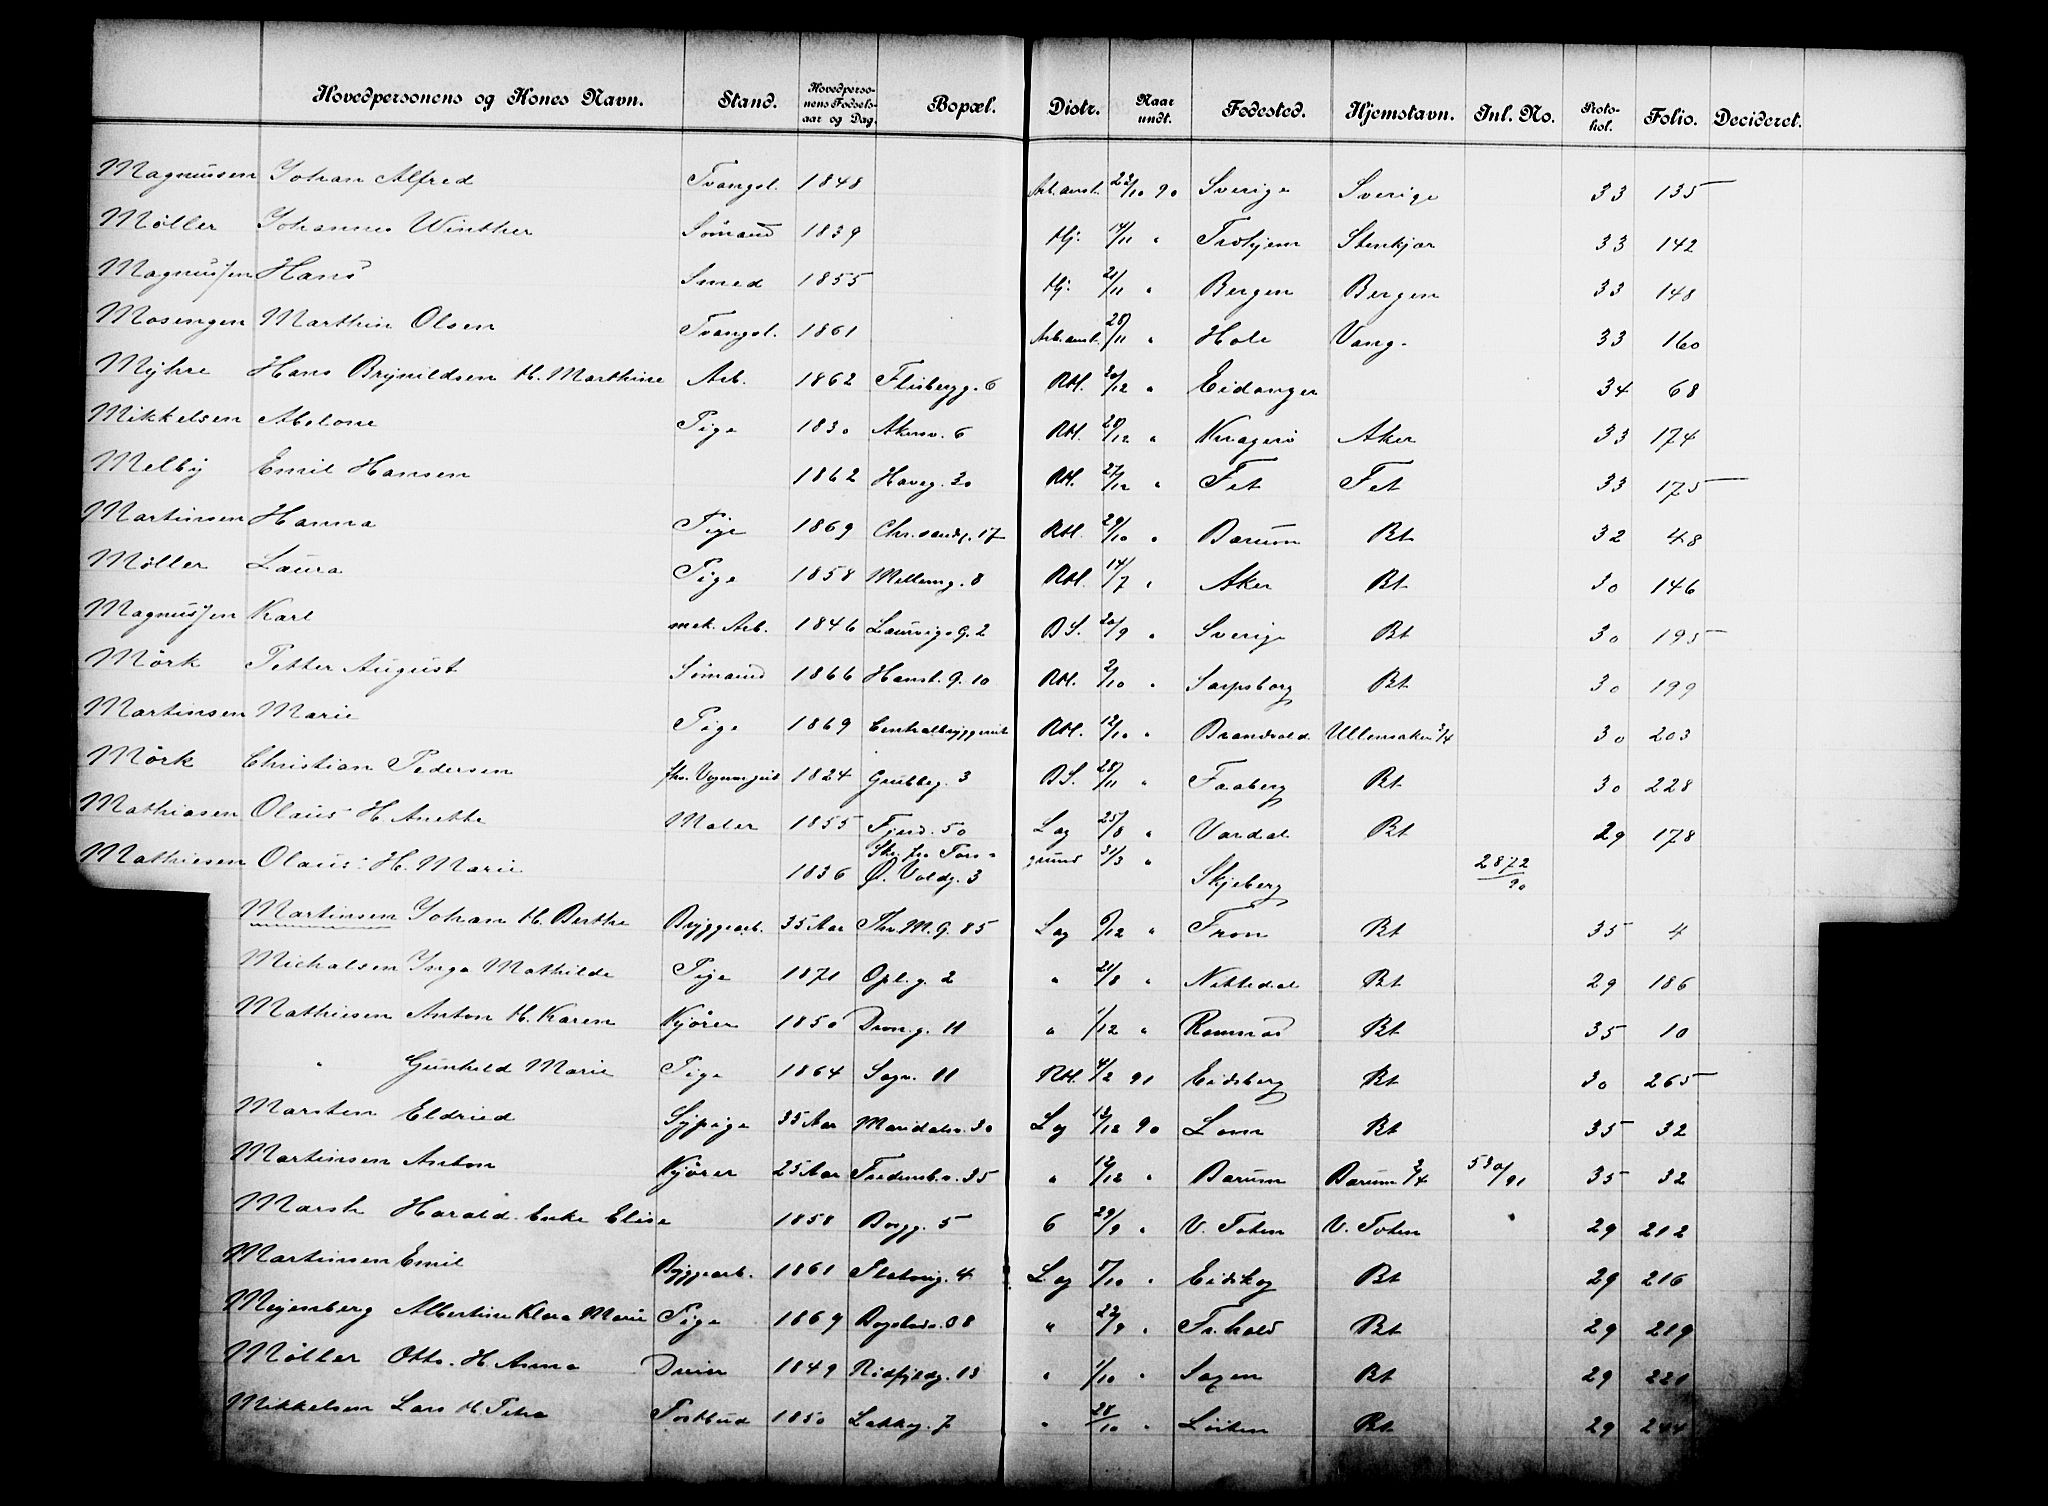 Hovedpersonens og Kones Navn. Stand. Hovedpersonens Fødselsaar og Dag. Bopæl. Distr. Naar undt. Fødested. Hjemstavn. Inl. No. Protokol. Folio. Decideret.
Magnussen Johan Alfred Tvangsl. 1848 Arb.anst. 23/10 90 Sverige Sverige 33 135
Møller Johannes Winther Sømand 1839 Hj. 14/11 " Trohjem Stenkjær 33 142
Magnussen Hans Smed 1855 Hj. 21/11 " Bergen Bergen 33 148
Mosengen Marthin Olsen Tvangsl. 1861 Arb.anst. 28/11 " Hole Vang. 33 160
Myhre Hans Brynildsen H. Marthine Arb. 1862 Flisbergg. 6 RH. 20/12 " Eidanger 34 68
Mikkelsen Abelone Pige 1830 Akersv. 6 RH. 28/12 " Kragerø Aker 33 174
Melby Emil Hansen 1862 Haveg. 30 RH. 27/12 " Fet Fet 33 175
Martinsen Hanna Pige 1869 Chr.sandg. 17 RH. 29/10 " Barum Bt 32 48
Møller Laura Pige 1858 Mellemg. 8 RH. 14/7 " Aker Bt 30 146
Magnussen Karl mek. Arb. 1846 Laurvigsg. 2 BS. 20/9 " Sverige Bt 30 195
Mørk Petter August Sømand 1866 Hanst. g. 10 RH. 2/10 " Sarpsborg Bt 30 199
Martinsen Marie Pige 1869 RH. 12/10 " Brandvold Ullensaker 3/4 30 203
Mørk Christian Pedersen 1824 Grubbeg. 3 BS. 28/11 " Faaberg Bt 30 228
Mathiasen Olaus H. Anette Maler 1855 Fjerd. 50 Lag 25/8 " Vardal Bt 29 178
Mathiesen Olaus H. Marie 1836 Ø. Voldg. 3 grund 31/3 " Skjeberg 2872/90
Martinsen Johan H. Berthe Byggearb. 35 Aar Thv. M. G. 85 Lag 9/12 " Fron Bt 35 4
Michalsen Inga Mathilde Pige 1871 Opl. g. 2 " 21/8 " Nittedal Bt 29 186
Mathiesen Anton H. Karen Kjører 1850 Dron. g. 11 " 1/12 " Romnas Bt 35 10
" Gunhild Marie Pige 1864 Sagv. 11 RH. 4/2 91 Eidsberg Bt 30 265
Marsten Eldried Sypige 35 Aar Maridalsv. 30 Lag 13/12 90 Lom Bt 35 32
Martinsen Anton Kjører 25 Aar Fredensb.v. 35 " 12/12 " Barum Barum 3/4 530/91 35 32
Marsk Harald. Enke Elise 1858 Bergg. 5 6 29/9 " V. Toten V. Toten 29 212
Martinsen Emil Byggearb. 1861 4 Lag 7/10 " Eidskog Bt 29 216
Mejenberg Albertine Klara Marie Pige 1869 " 22/9 " Fr.hald Bt 29 219
Møller Otto. H. Anna Dreier 1849 " 1/10 " Bt 29 221
Mikkelsen Lars H. Petra Postbud 1850 Lakkeg. 7 " 28/10 " Løiten Bt 29 244